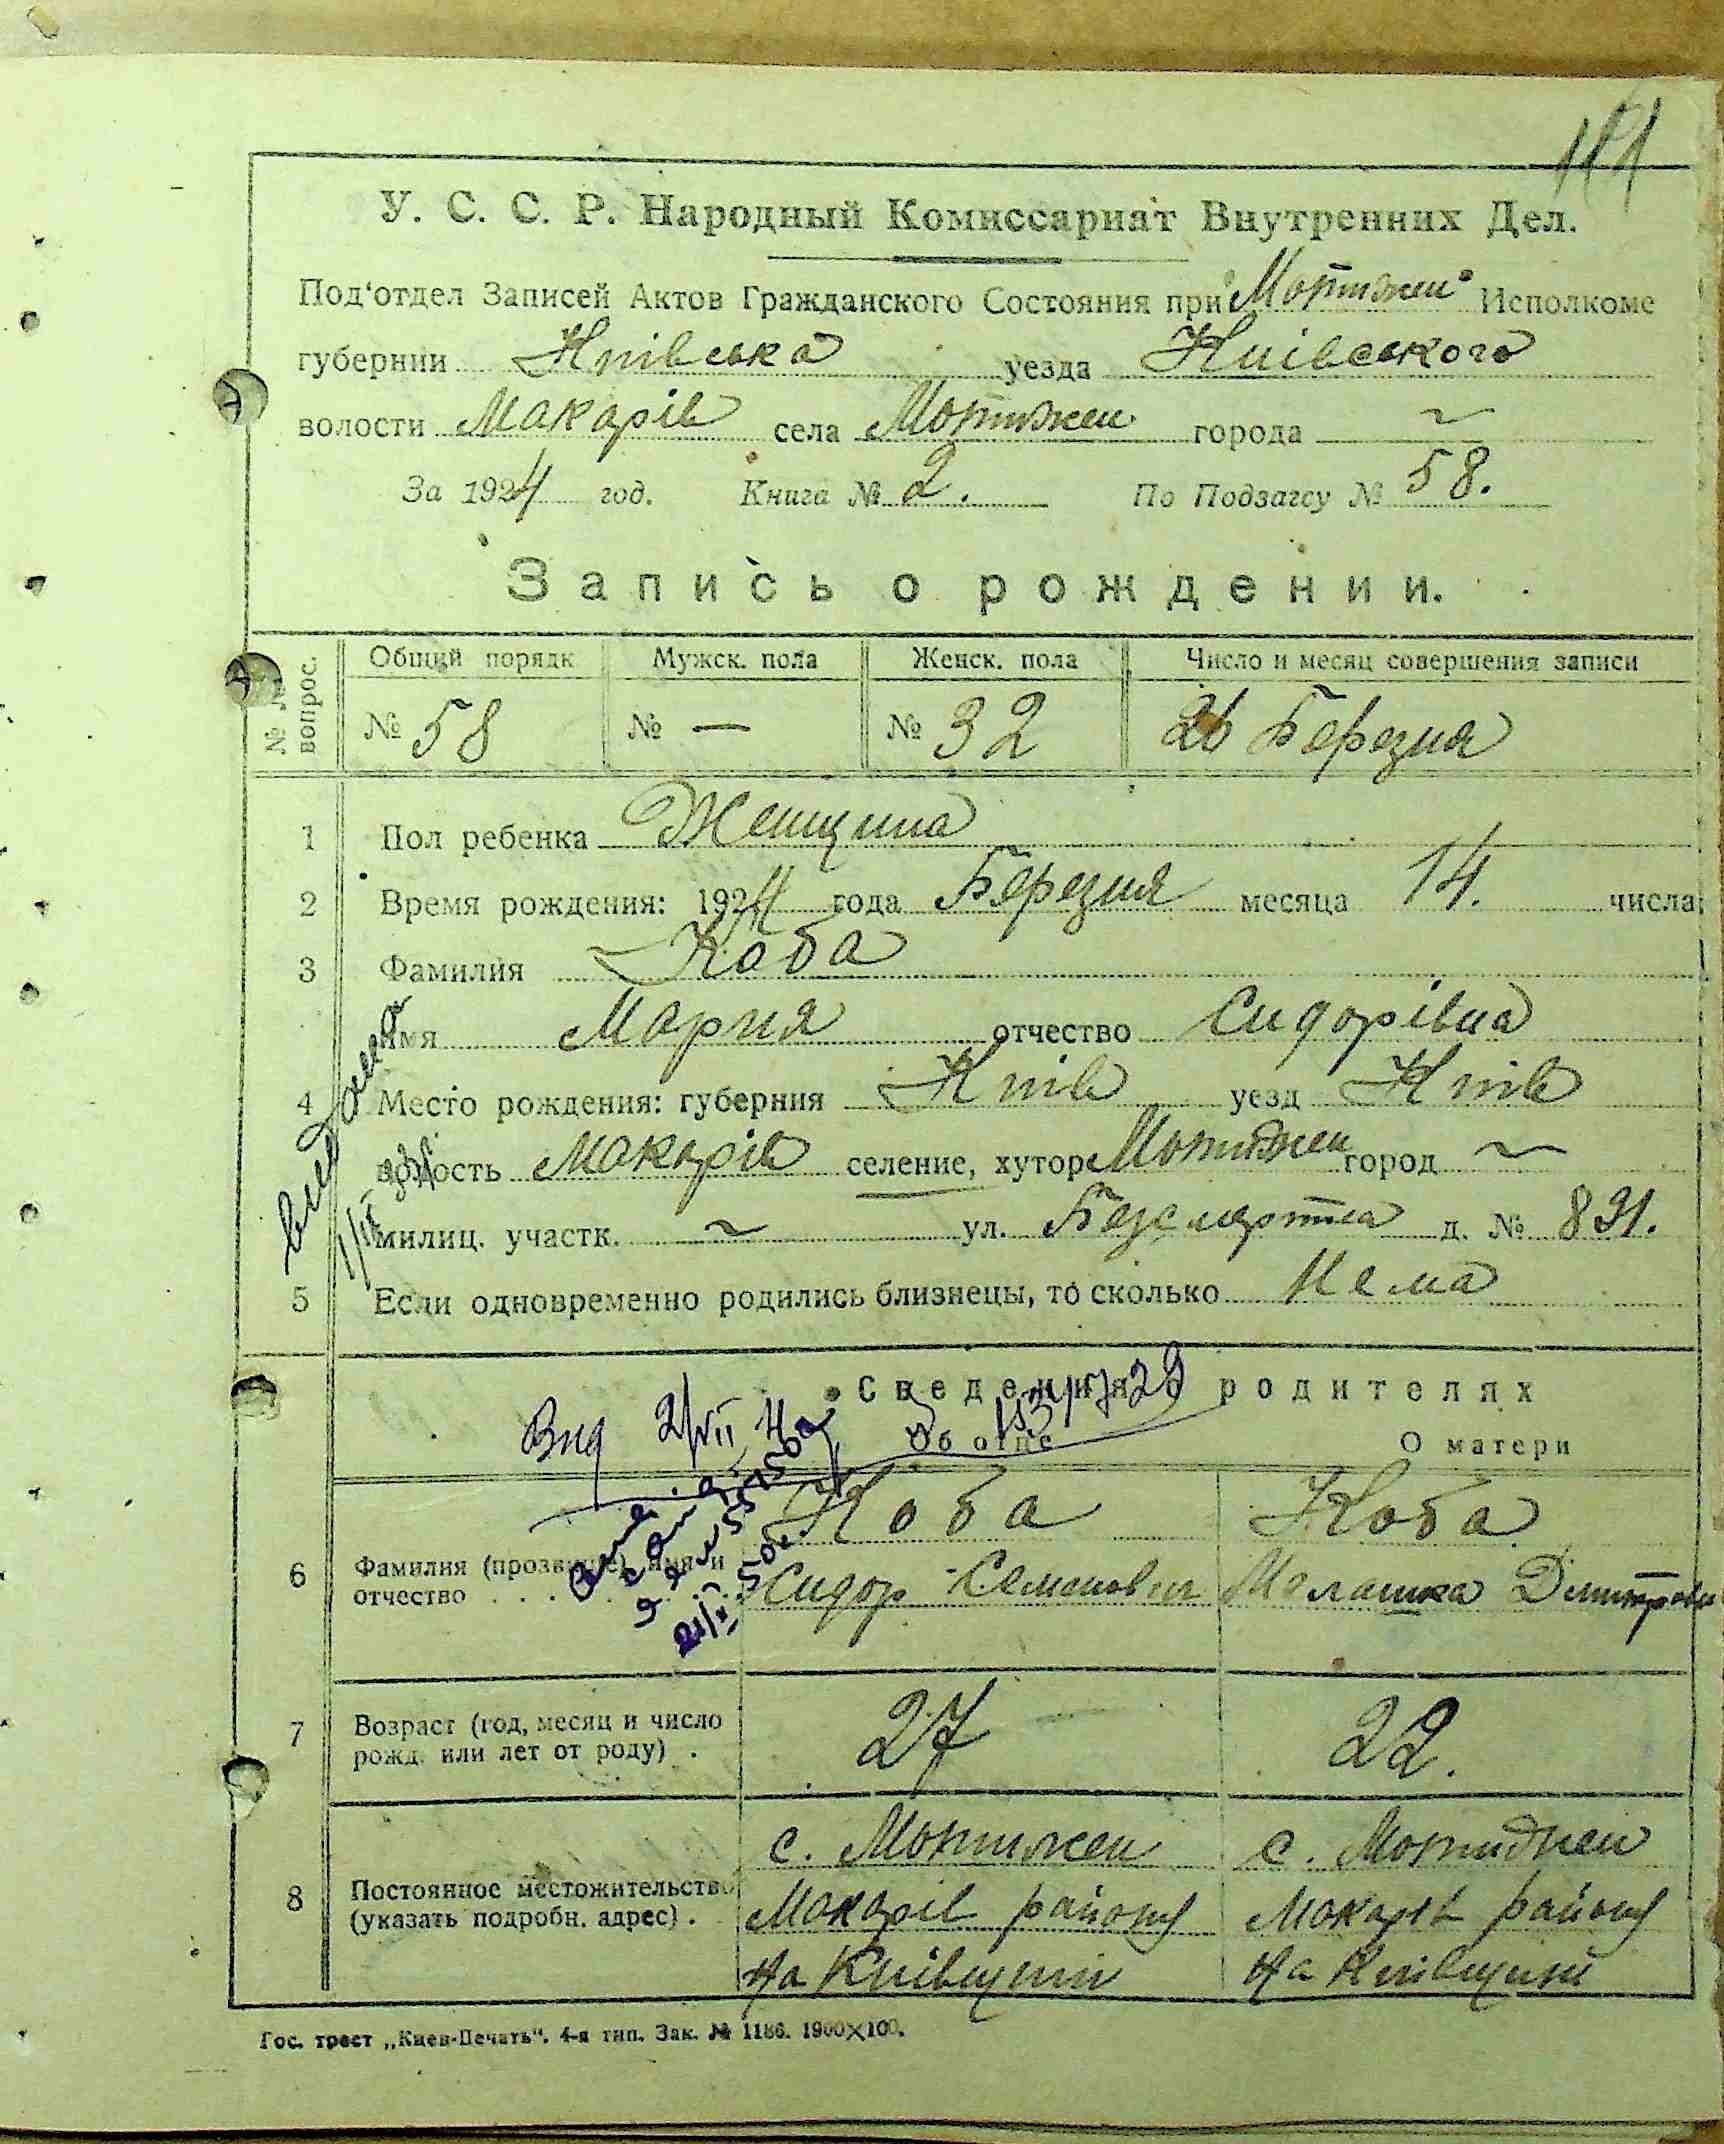 У. С. С. Р. Народный Комиссариат Внутренних Дел.
Под'отдел Записей Актов Гражданского Состояния при Мотижен Исполкоме
губернии Київська уезда Київського
волости Макарів села Мотижен города ~
За 1924 год. Книга № 2. По Подзагсу № 58.
Запись о рождении.
№ № вопрос. Общий порядк Мужск. пола Женск. пола Число и месяц совершения записи
№ 58 № — № 32 26 Березня
1 Пол ребенка Женщина
2 Время рождения: 1924 года Березня месяца 14. числа
3 Фамилия Коба
имя Мария отчество Сидорівна
4 Место рождения: губерния Київ уезд Київ
волость Макарів селение, хутор Мотижен город ~
милиц. участк. ~ ул. Безсмертна д. № 831.
5 Если одновременно родились близнецы, то сколько Нема
Сведения о родителях
Об отце О матери
6 Фамилия (прозвище), имя и отчество . . . Коба Сидор Семенович Коба Малашка Дмитров
7 Возраст (год, месяц и число рожд. или лет от роду) . 27 22.
8 Постоянное местожительство (указать подробн. адрес) . с. Мотижен Макарів району на Київщині с. Мотижен Макарів району на Київщині
Гос. трест „Киев-Печать“. 4-я тип. Зак. № 1186. 1900×100.